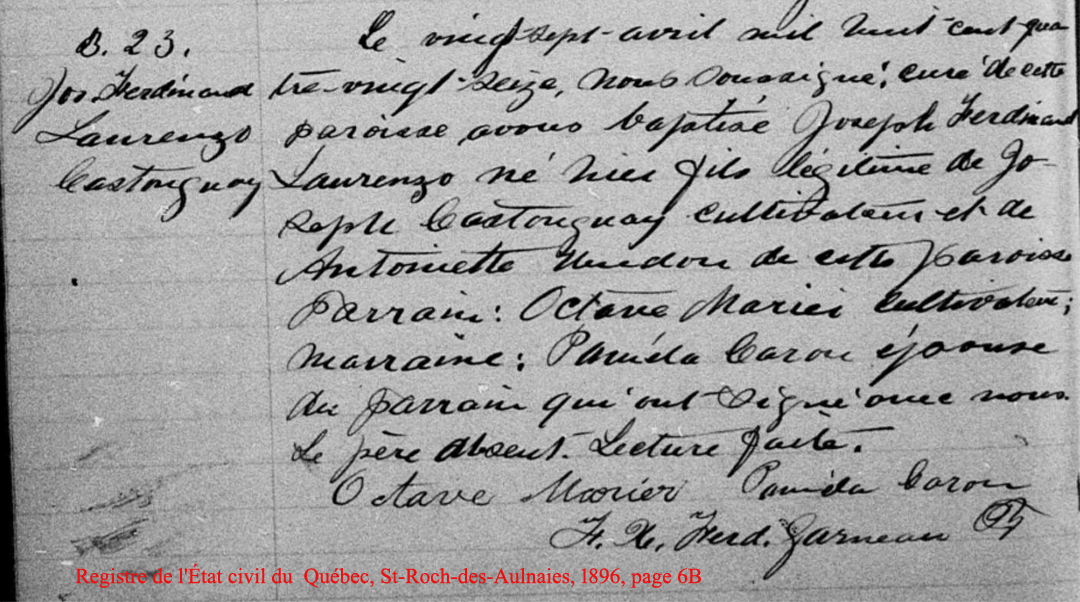 B. 23.
Jos. Ferdinand
Laurenzo
Castonguay
Le vingt-sept avril mil huit cent qua
tre-vingt-seize, nous soussigné, curé de cette
paroisse avons baptisé Joseph Ferdinand
Laurenzo né hier fils légitime de Jo-
seph Castonguay cultivateur et de
Antoinette de cette paroisse
Parrain: Octave Marier cultivateur;
marraine: Paméla Caron épouse
du parrain qui ont signé avec nous.
Le père absent. Lecture faite.
Octave Marier Paméla Caron
F. X. Ferd. Garneau
Registre de l'État civil du Québec, St-Roch-des-Aulnaies, 1896, page 6B